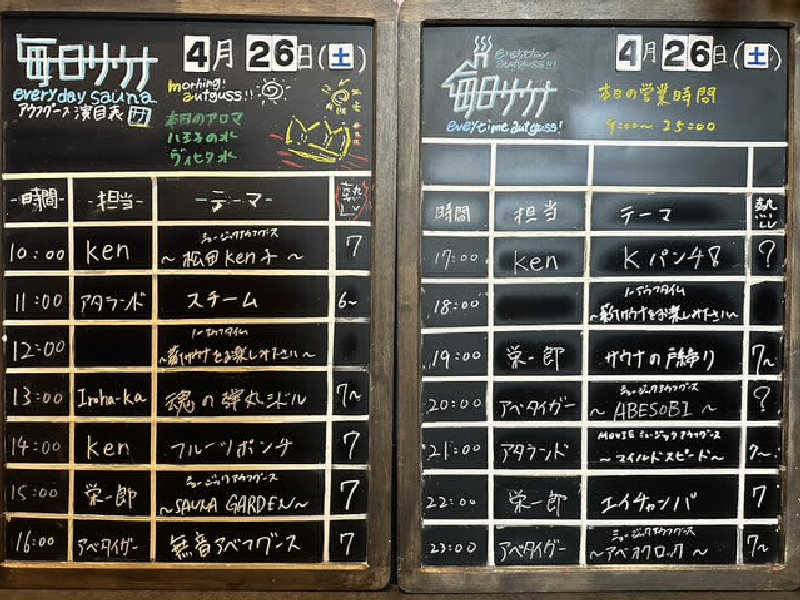 毎日サウナ
4月26日(土)
everyday sauna
アウフグース演目表
morning
autguss!!
本日のアロマ
八王子の水
ヴィヒタ水
-時間- -担当- -テーマ- 熱いレ
ミュージックアウフグース
10:00 Ken ~松田Ken子~ 7
11:00 アタランド スチーム 6~
ノーアウフタイム
12:00 ~薪サウナをお楽しみ下さい~
13:00 Iroha-ka 魂の弾丸シドル 7~
14:00 Ken フルーツポンチ 7
ミュージックアウフグース
15:00 栄一郎 ~SAUNA GARDEN~ 7
16:00 アベタイガー 無音アベフグース 7
everyday
autguss!!!
毎日サウナ
everytime autguss!
4月26日(土)
本日の営業時間
9:00~25:00
時間 担当 テーマ 熱いレ
17:00 Ken Kパンチ8 ?
ノーアウフタイム
18:00 ~薪サウナをお楽しみ下さい~
19:00 栄一郎 サウナの戸締り 7~
ミュージックアウフグース
20:00 アベタイガー ~ABESOBI~ ?
MOVIEミュージックアウフグース
21:00 アタランド ~マイルドスピード~ 7~
22:00 栄一郎 エイチャンバ 7
ミュージックアウフグース
23:00 アベタイガー ~アベオクロック~ 7~